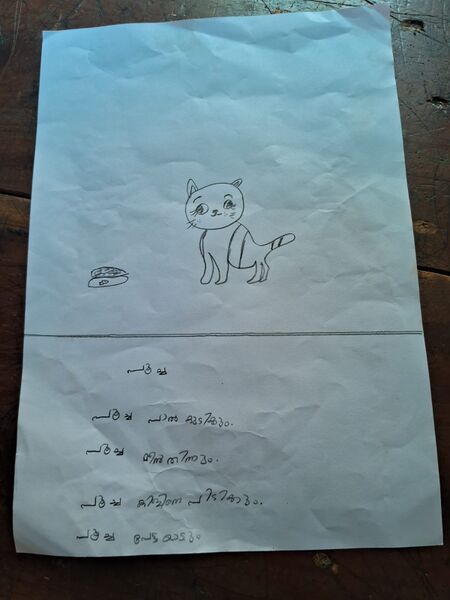 പൂച്ച
പൂച്ച പാൽ കുടിക്കും.
പൂച്ച മീൻ തിന്നും.
പൂച്ച കിളിയെ പിടിക്കും.
പൂച്ച